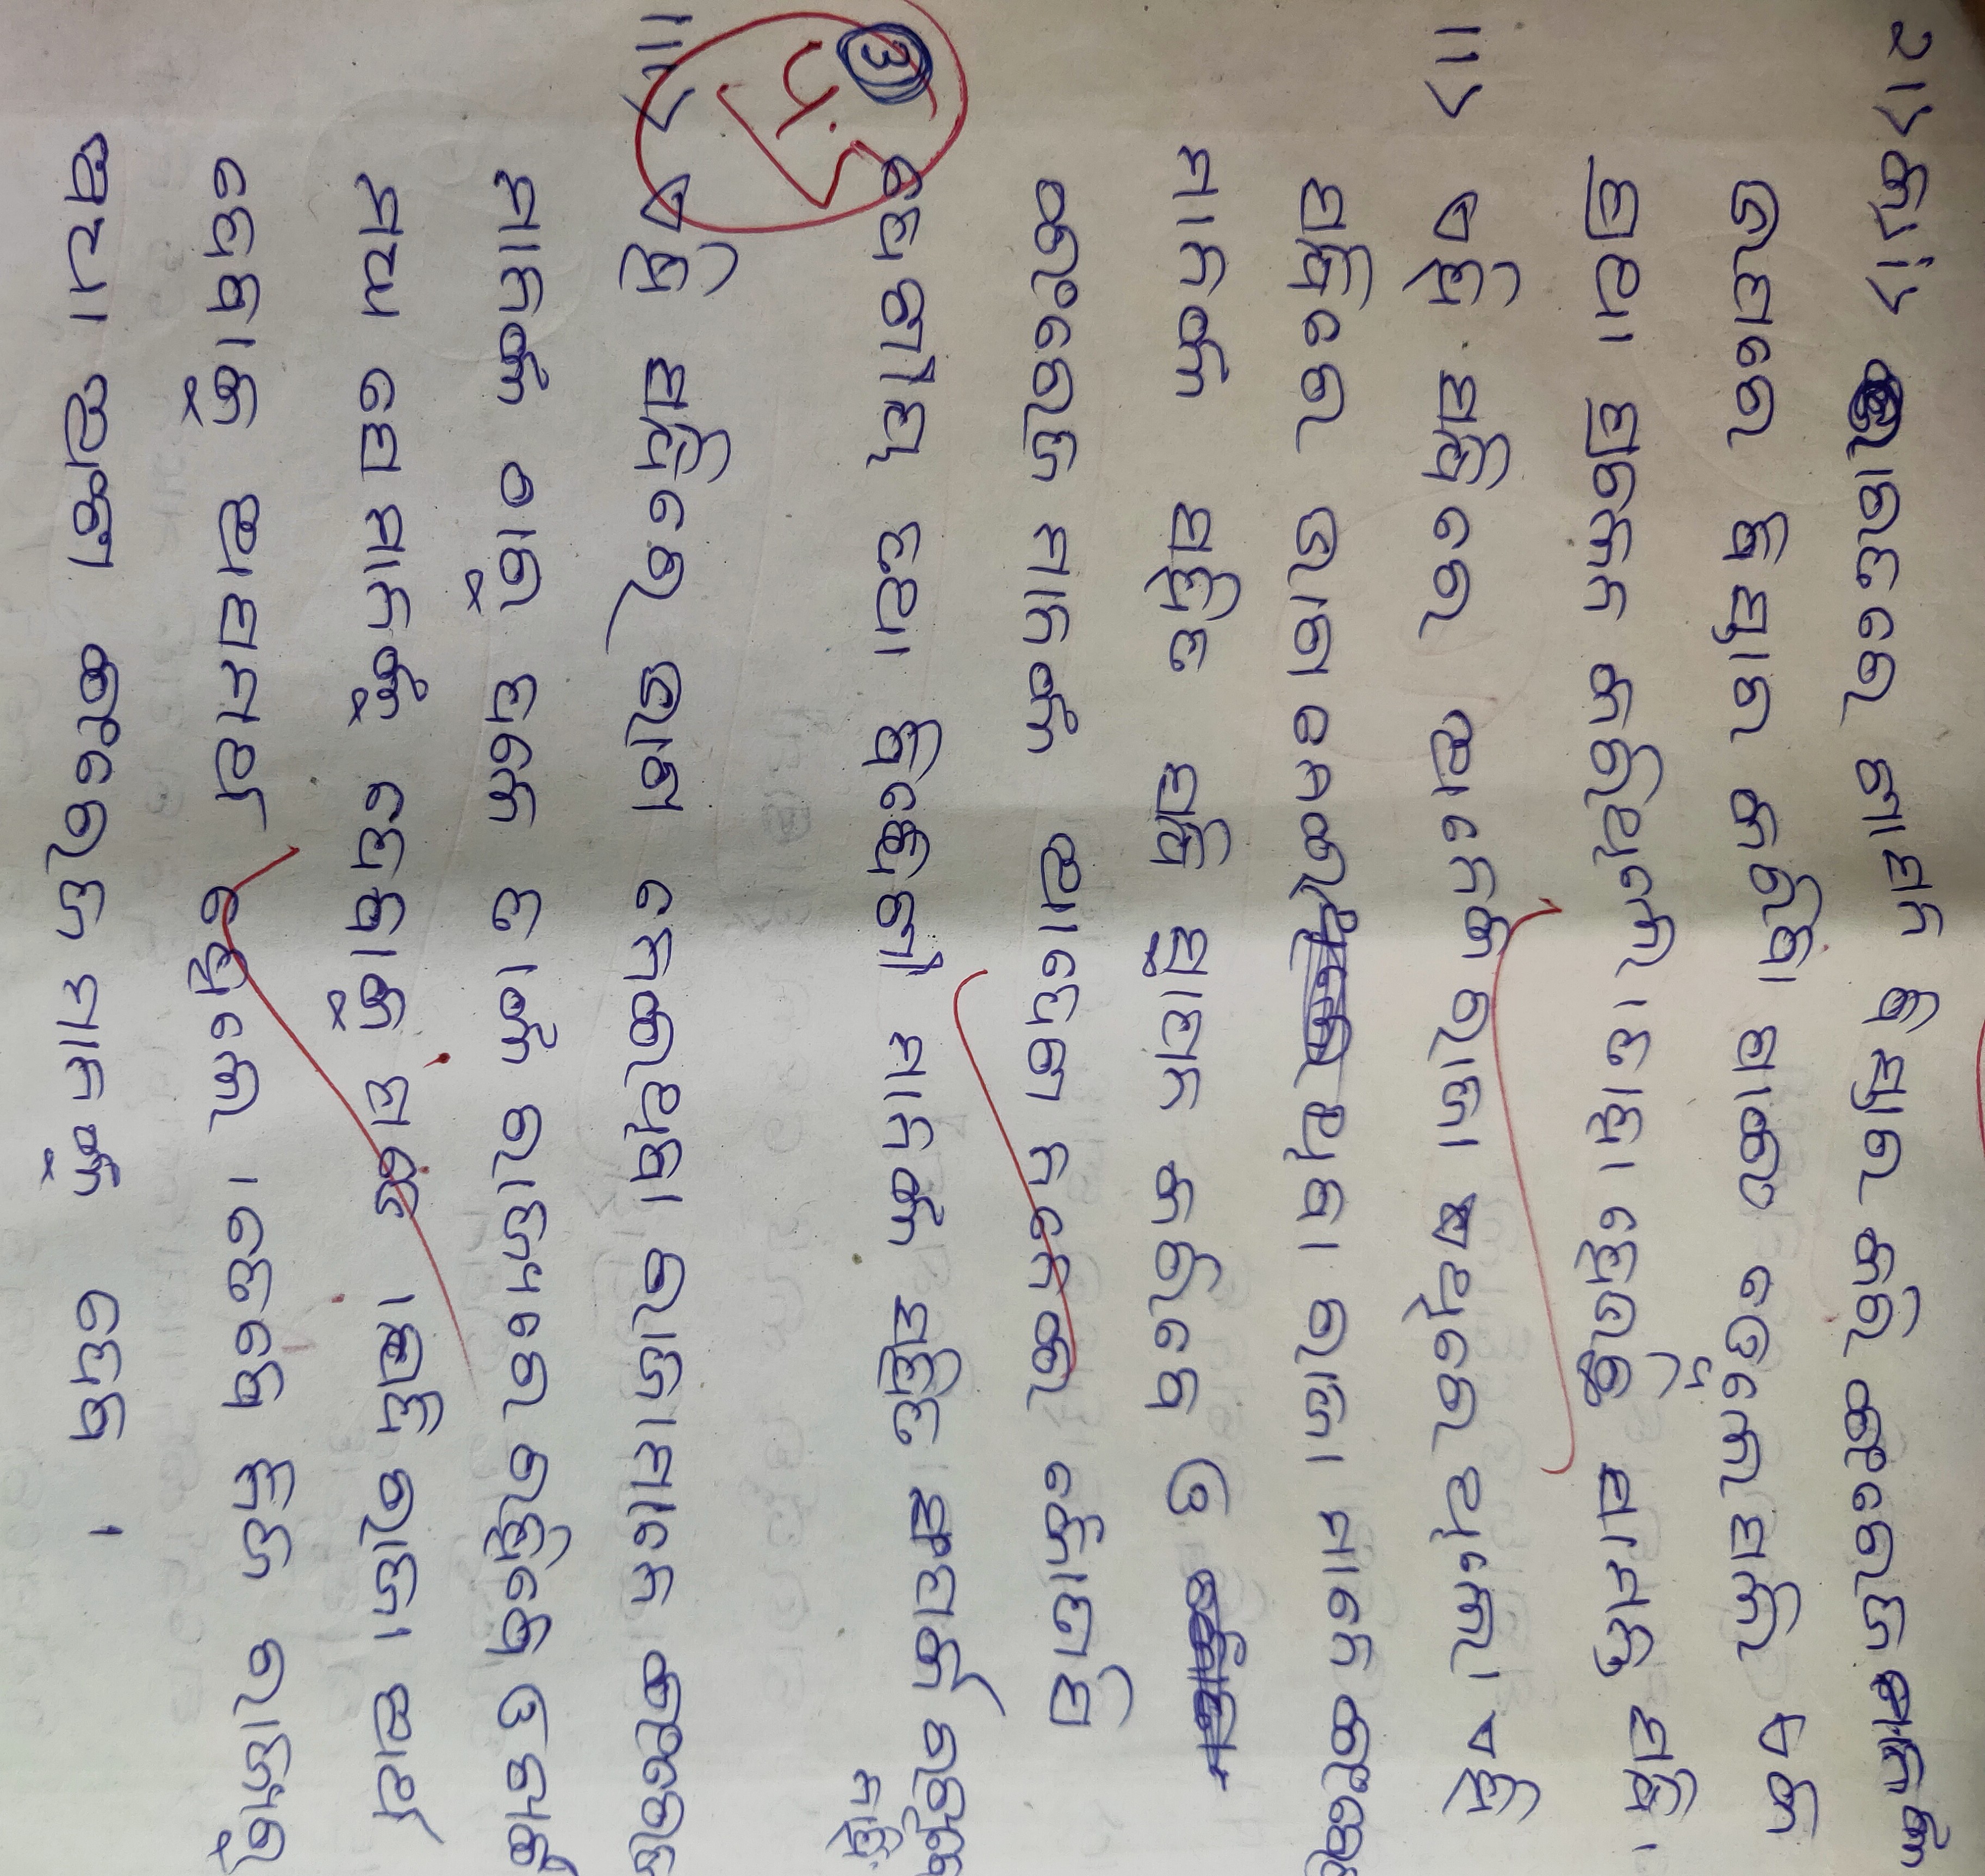 ୨୧> କ> i> ଭାରତରେ ଶାସନ ବିସ୍ତାର କରି ଇଂରେଜ ମାନଙ୍କ
ଉପରେ ବିସ୍ତାର କରିବା ପାଇଁ ୱେଲେସଲି ଏକ
ପ୍ରଥା ପ୍ରଚଳନ କରିଥିଲେ । ତାହା ହେଉଛି ସାମନ୍ତ ସନ୍ଧି ।
ii> ଏହି ସନ୍ଧିରେ ଅନେକ ରାଜା ଏଥିରେ ଥିଲେ। ଏହି
ସନ୍ଧିରେ ଭାଗ ନେଇ ଥିବା ରାଜା ମାନେ ଇଂରେଜ
ମାନଙ୍କ ସହିତ ସନ୍ଧି ସ୍ଥାପନ କରିବେ ଓ
ଇଂରେଜ ମାନଙ୍କ ଆଦେଶ ନନେଇ କୌଣସି
ଦେଶୀୟ ତଥା ବିଦ୍ଧେଶୀ ମାନଙ୍କ ସହିତ ସଂପର୍କ ରଖିବେ
ନାହିଁ
୩
iii> ଏହି ସନ୍ଧିରେ ଭାଗ ନେଇଥିବା ରାଜାମାନେ ଇଂରେଜ
ମାନଙ୍କ ଠାରୁ ଦଳେ ତାଙ୍କ ରାଜ୍ୟରେ ରହିବେ ଓ ଖର୍ଚ୍ଚ
ମଧ୍ୟ ସେ ମାନଙ୍କୁ ଦେବାକୁ ପଡେ । ଯଦି ରାଜା ଅର୍ଥ
ଦେବାକୁ ଅସମର୍ଥ ହେଲେ । ତେବେ ନିଜ ରାଜ୍ୟରୁ
ଅଧା ଅଂଶ ଇଂରେଜ ମାନଙ୍କୁ ଦେବ ।